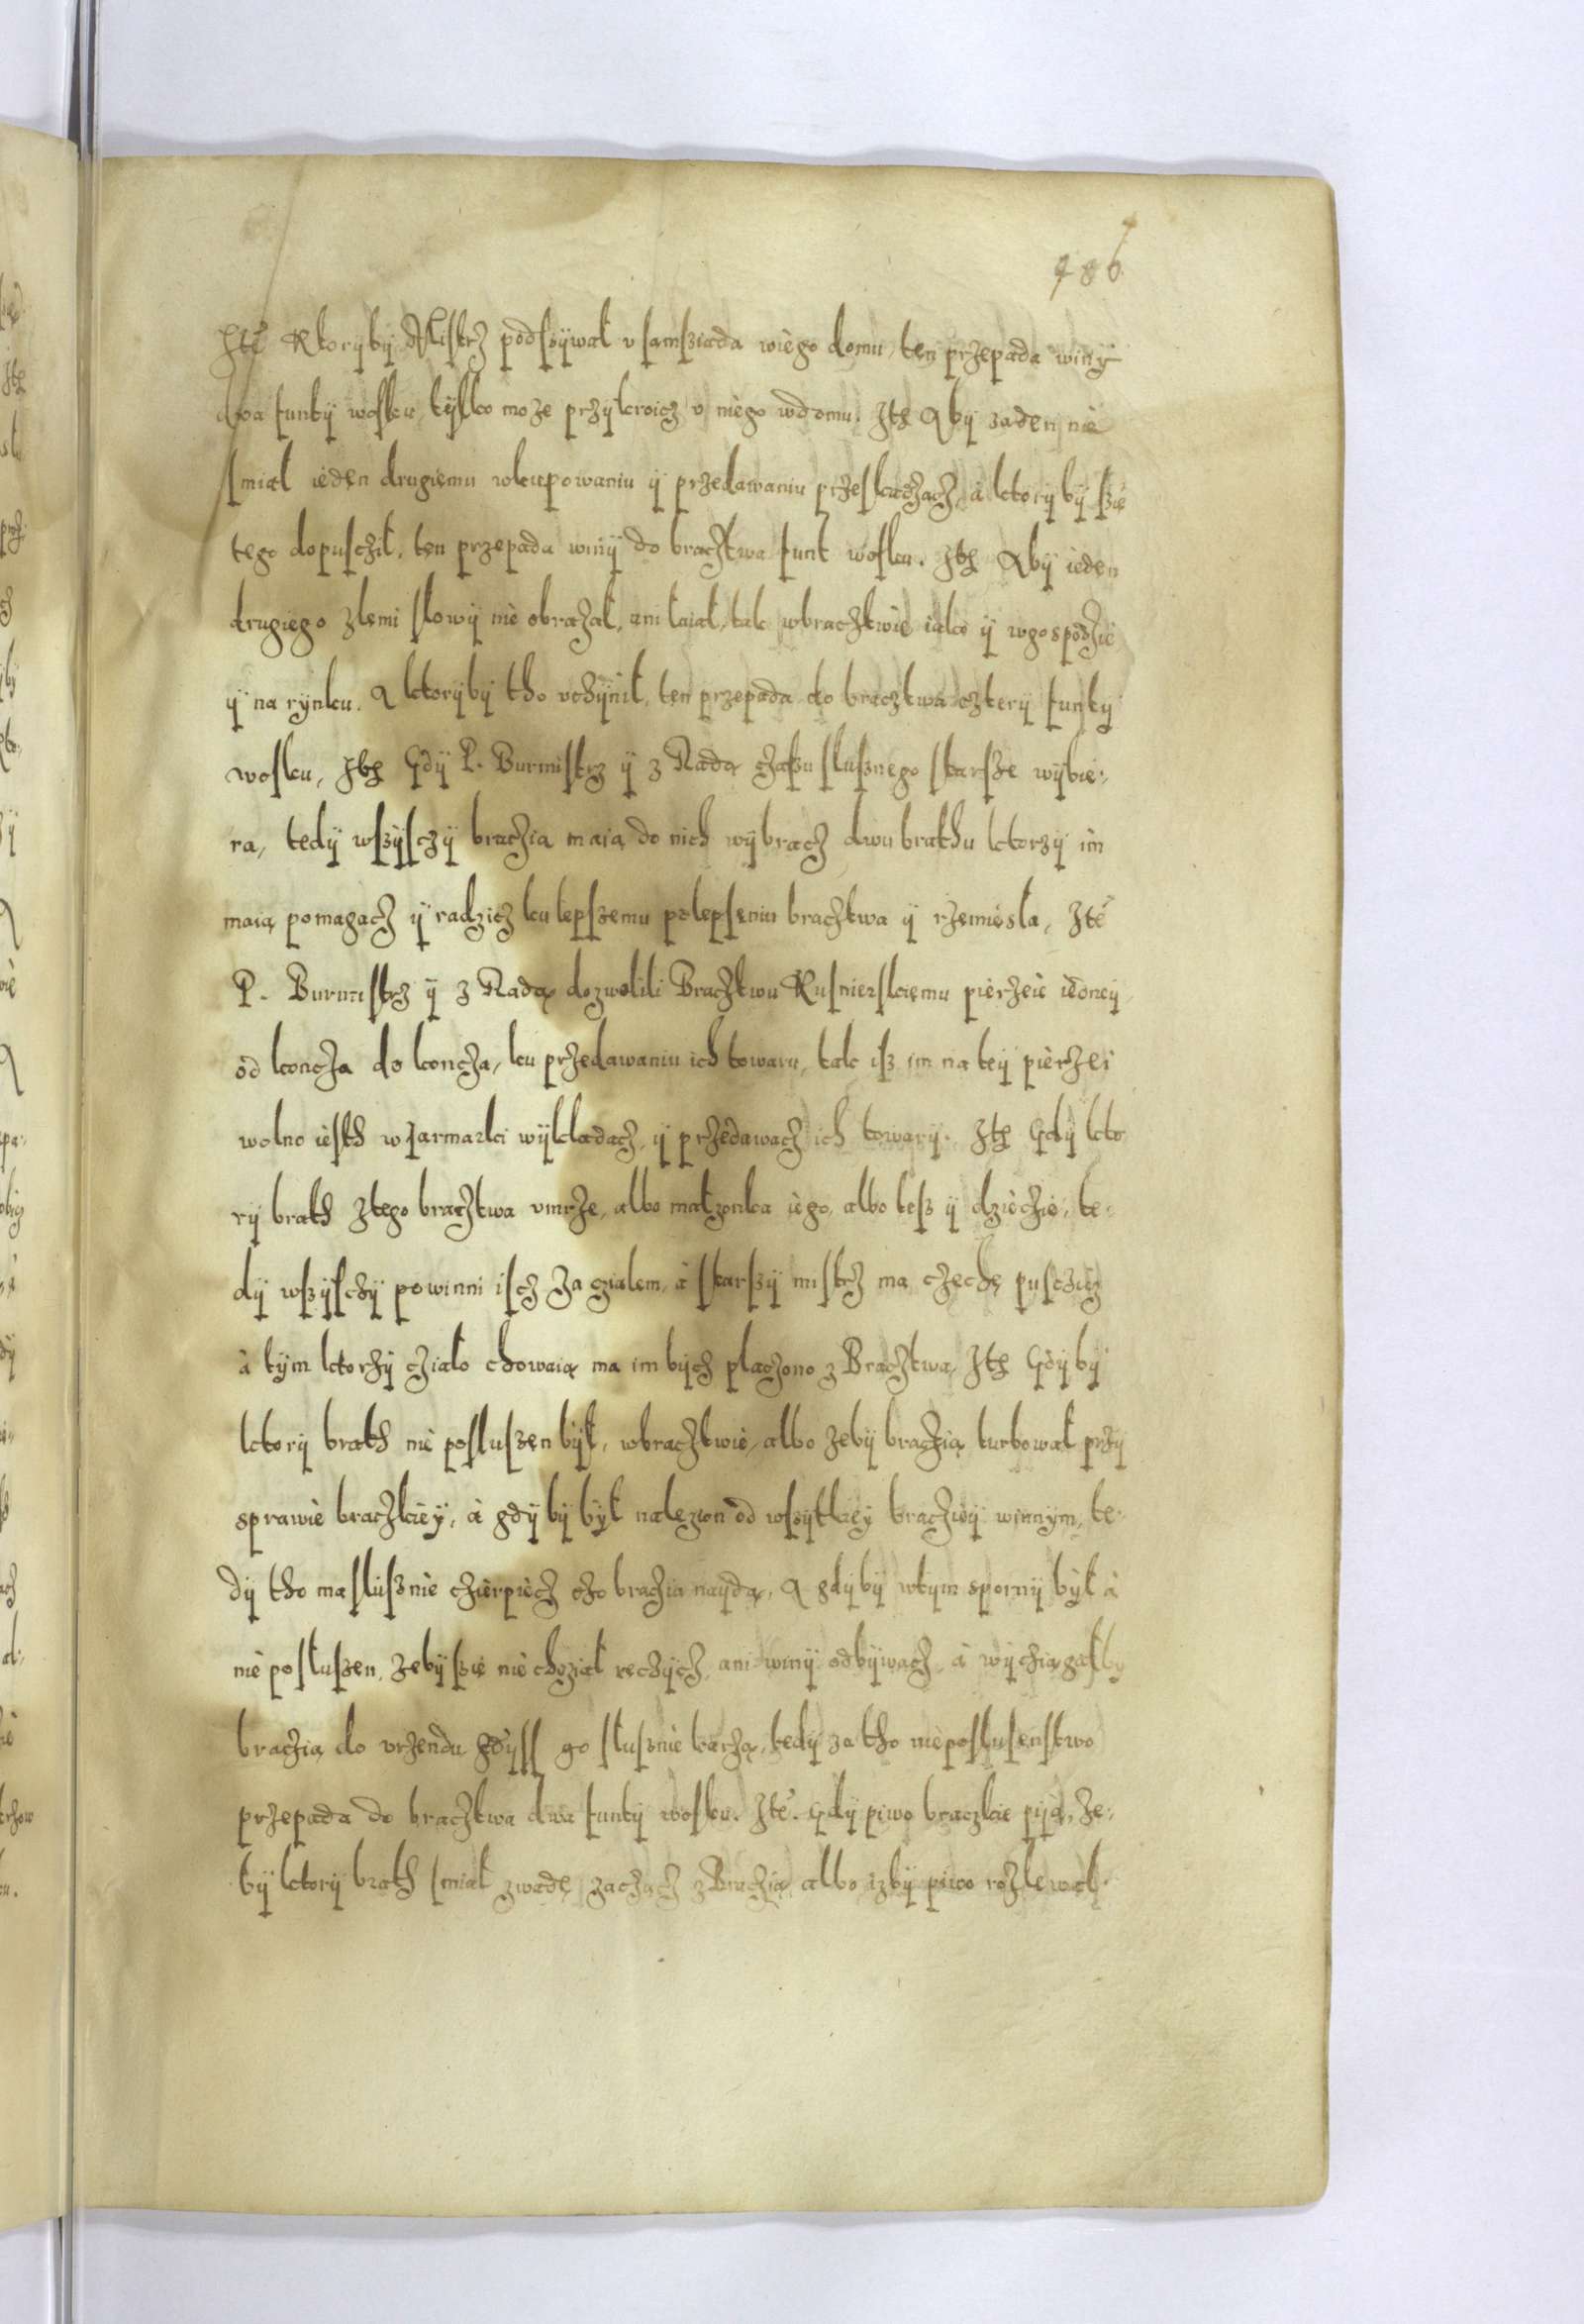 486
Ite Ktorÿbÿ Mistrz podszÿwał v samsziada wiego domu, ten przepada winÿ
dwa funtÿ wosku, tÿlko moze przÿkroicz v niego wdomu. Ite Abÿ zaden nie
smiał ieden drugiemu wkupowaniu ÿ przedawaniu przeskadzacz, a ktorÿ bÿ szie
tego dopusczil, ten przepada winÿ do bracztwa funt wosku. Ite Abÿ ieden
drugiego zlemi slowÿ nie obrazał, ani łaiał, tak wbracztwie iako ÿ wgospodzie
ÿ na rÿnku. A ktorÿbÿ tho vchÿnił, ten przepada do bracztwa czterÿ funtÿ
wosku, Ite Gdÿ P. Burmistrz ÿ z Radą czaszu slusznego starsze wÿbie:
ra, tedÿ wszÿsczÿ braczia maią do nich wÿbracz dwu brathu ktorzÿ im
maią pomagacz ÿ radzicz ku lepszemu polepseniu bracztwa ÿ rzemiesła, Ite
P. Burmistrz ÿ z Radą dozwolili Bracztwu Kusnierskiemu pierzeie iednej
od koncza do koncza, ku przedawaniu ich towaru, tak isz im na teÿ pierzei
wolno iesth w Jarmarki wÿkładacz, ÿ przedawacz ich towarÿ. Ite Gdÿ kto
rÿ brath ztego bracztwa vmrze, albo małzonka iego, albo tesz ÿ dzieczie, te:
dÿ wszÿschÿ powinni iscz za czialem, a starszÿ mistrz ma czechę pusczicz
à tÿm ktorzÿ cziało chowaią ma im bÿcz placzono z Bracztwa, Ite Gdÿbÿ
ktorÿ brath nie posluszen bÿł, wbracztwie, albo zebÿ braczią turbował przÿ
sprawie braczkieÿ, à gdÿ bÿ bÿł nalezion od wsÿtkieÿ braczieÿ winnÿm, te:
dÿ tho ma słusznie czierpiecz czo braczia naÿdą, A gdÿbÿ wtÿm spornÿ bÿł à
nie posłuszen, zebÿ szie nie chcział rechÿcz, ani winÿ odbÿwacz, à wÿcziągałby
braczią do vrzendu gdÿss go słusznie karzą, tedÿ za tho nieposlusenstwo
przepada do bracztwa dwa funtÿ wosku. Ite. Gdÿ piwo braczkie piją, ze:
bÿ ktorÿ brath smiał zwadę zacząć z Braczią albo izbÿ piwo rozlewał.